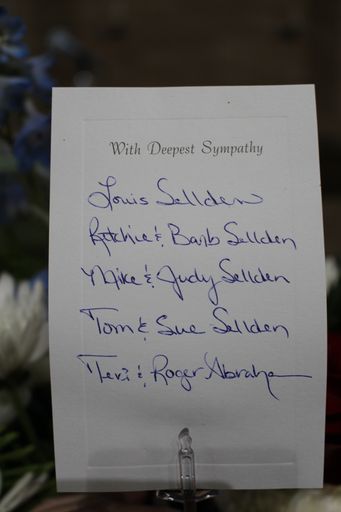 With Deepest Sympathy
Louis Sellden
Ritchie & Barb Sellden
Mike & Judy Sellden
Tom & Sue Sellden
Teri & Roger Abraham